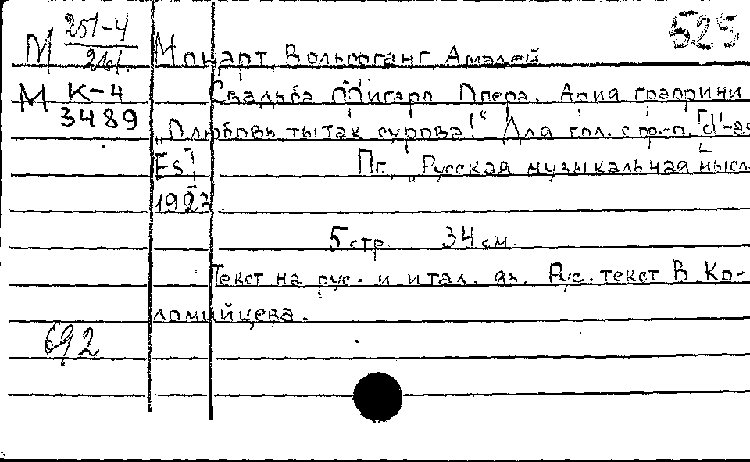 525
М 251-4
Моцарт, Вольфганг Амадей
М К-4
3489
Свадьба Фигаро. Опера. Ария графини
„О любовь, ты так сурова!" Для гол. с ф-п. [d'-as
Es"]
Пг., „Русская музыкальная мысль
1923
5 стр. 34 см.
Текст на рус. и итал. яз. Рус. текст В. Ко-
ломийцева.
692